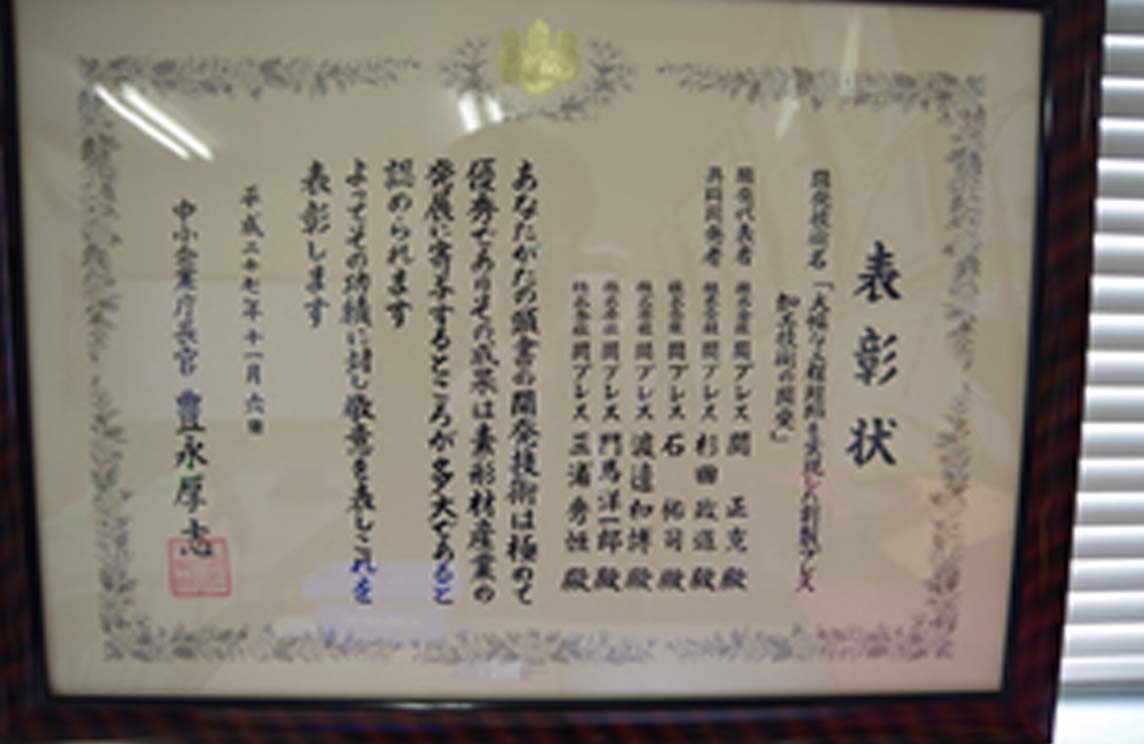 表彰状
開発技術名 「大幅な工程短縮を実現した創製プレス
加工技術の開発」
開発代表者 株式会社 関プレス 関 正克 殿
共同開発者 株式会社 関プレス 杉田 政巡 殿
株式会社 関プレス 石 祐司 殿
株式会社 関プレス 渡邉和博 殿
株式会社 関プレス 門馬洋一郎 殿
株式会社 関プレス 三浦秀恒 殿
あなたがたの頭書の開発技術は極めて
優秀でありその成果は素形材産業の
発展に寄与するところが多大であると
認められます
よってその功績に対し敬意を表しこれを
表彰します
平成二十七年十一月六日
中小企業庁長官 豊永厚志